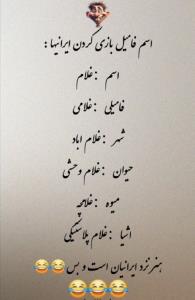 اسم فامیل بازی کردن ایرانیها:
اسم : غلام
فامیلی : غلامی
شهر : غلام اباد
حیوان : غلام وحشی
میوه : غلامچه
اشیا : غلام پلاستیکی
هنر نزد ایرانیان است و بس 😂😂
😂😂😂